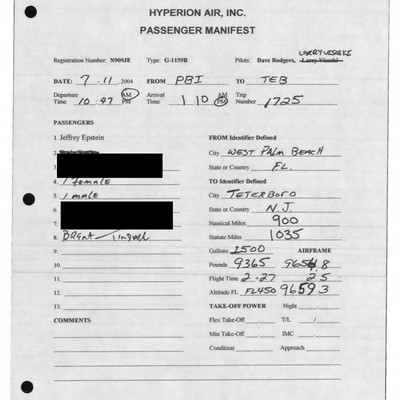 HYPERION AIR, INC.
PASSENGER MANIFEST
LARRY VISOSKI
Registration Number: N909JE Type: G-1159B Pilots: Dave Rodgers, Larry Visoski
DATE: 7-11, 2004 FROM PBI TO TEB
Departure Time 10:47 AM PM Arrival Time 1 10 AM PM Trip Number 1725
PASSENGERS
1. Jeffrey Epstein FROM Identifier Defined
2. City WEST PALM BEACH
3. State or Country FL.
4. 1 FEMALE TO Identifier Defined
5. 1 male City TETERBORO
6. State or Country N.J.
7. Nautical Miles 900
8. BRENT Tindall Statute Miles 1035
9. Gallons 1500 AIRFRAME
10. Pounds 9365
11. Flight Time 2-27 2 5
12. Altitude FL FL450 9659 3
13. TAKE-OFF POWER Night
COMMENTS Flex Take-Off T/L /
Min Take-Off IMC
Condition Approach